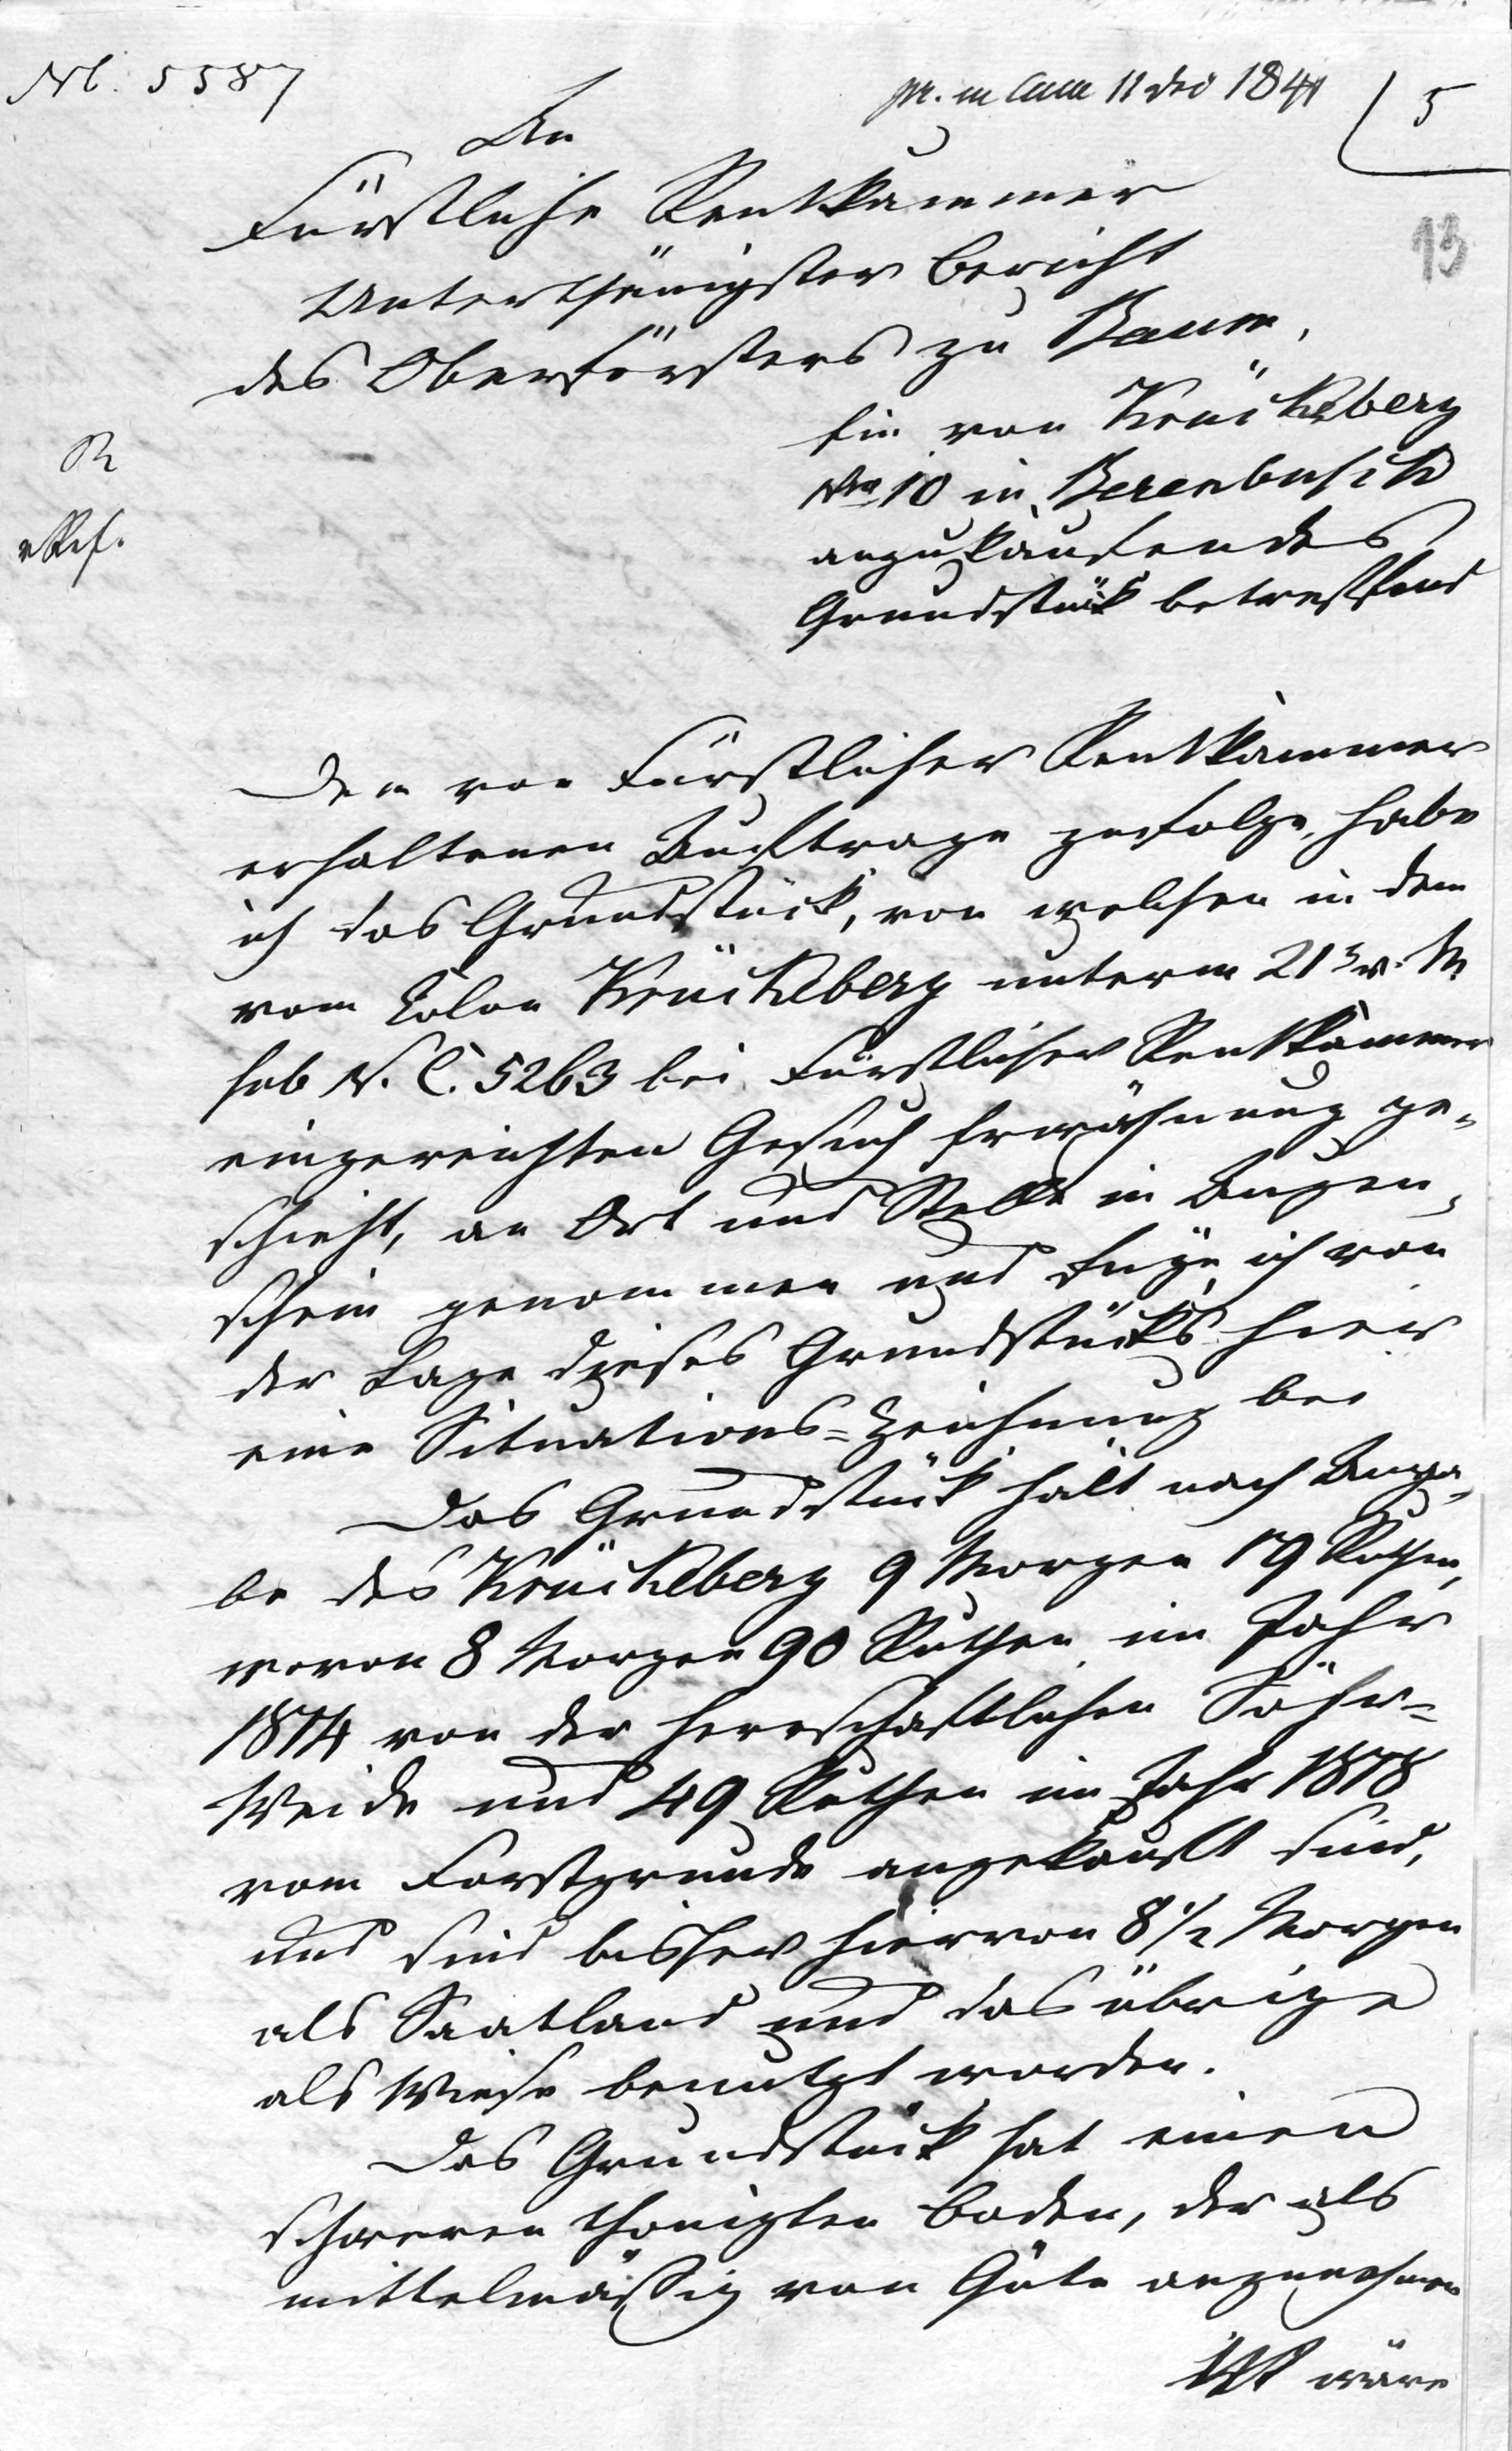 Nl. 5587
pr. in Cam 11 Dec 1841
5
13
An
Fürstliche Rentkammer
Unterthänigster Bericht
des Oberförsters zu Baum,
R
ein von Krückeberg
No 10 in Berenbusch
anzukaufendes
Grundstück betreffend
Dem von Fürstlicher Rentkammer
erhaltenen Auftrage zufolge, habe
ich das Grundstück, von welchen in dem
vom Colon Krückeberg unterm 21 v. M.
sub N. C. 5263 bei Fürstlicher Rentkammer
eingereichten Gesuch Erwähnung ge-
schieht, an Ort und Stelle in Augen-
schein genommen und füge ich von
der Lage dieses Grundstücks hier
eine Situations-Zeichnung bei
Das Grundstück hält nach Anga-
be des Krückeberg 9 Morgen 19 Ruthen,
wovon 8 Morgen 90 Ruthen im Jahr
1814 von der herrschaftlichen
Weide und 49 Ruthen im Jahr 1818
vom Forstgrunde angekauft sind,
und sind bisher hiervon 8 1/2 Morgen
als Saatland und das übrige
als Wiese benutzt worden.
Das Grundstück hat einen
schweren thonigten Boden, der als
mittelmäßig von Güte anzunehmen
ist wäre